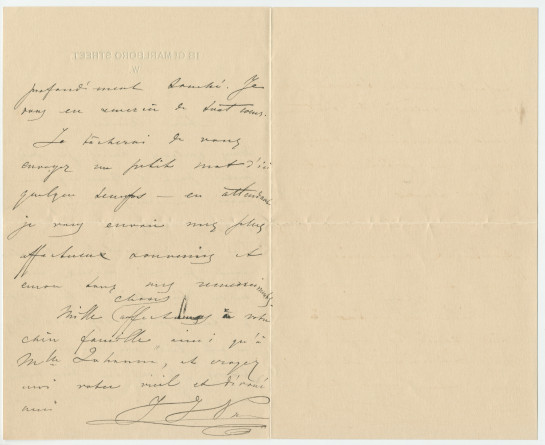 18 GT MARLBORO STREET
W.
profondément touché. Je
vous en remercie de tout coeur.
Je tâcherai de vous
envoyer un petit mot d'ici
quelque temps — en attendant
je vous envoie mes plus
affectueux souvenirs et
encore tous mes remerciements.
Mille choses à votre
chère famille, ainsi qu'à
Mlle et croyez
moi votre vieil et dévoué
ami